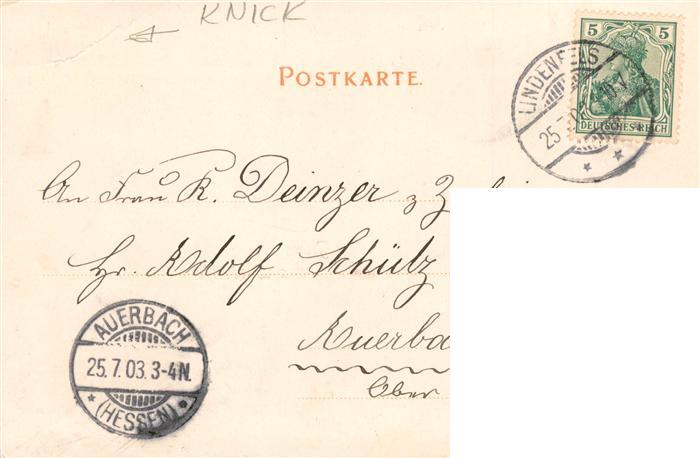 KNICK
POSTKARTE.
5 5
DEUTSCHES REICH
LINDENFELS
25.7.
An Frau K. Deinzer z
Hr. Adolf Schütz
Auerba
Ober
AUERBACH
25.7.03.3-4N.
(HESSEN)